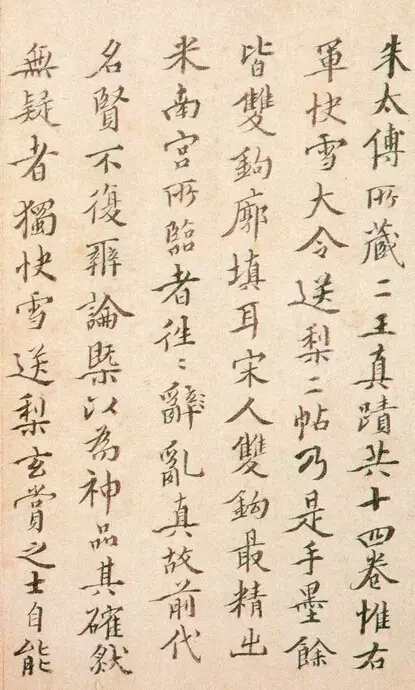 朱太傅所藏二王真蹟共十四卷惟右
軍快雪大令送梨二帖乃是手墨餘
皆雙鉤廓填耳宋人雙鉤最精出
米南宮所臨者往〻亂真故前代
名賢不復辨論槩以為神品其確然
無疑者獨快雪送梨玄賞之士自能